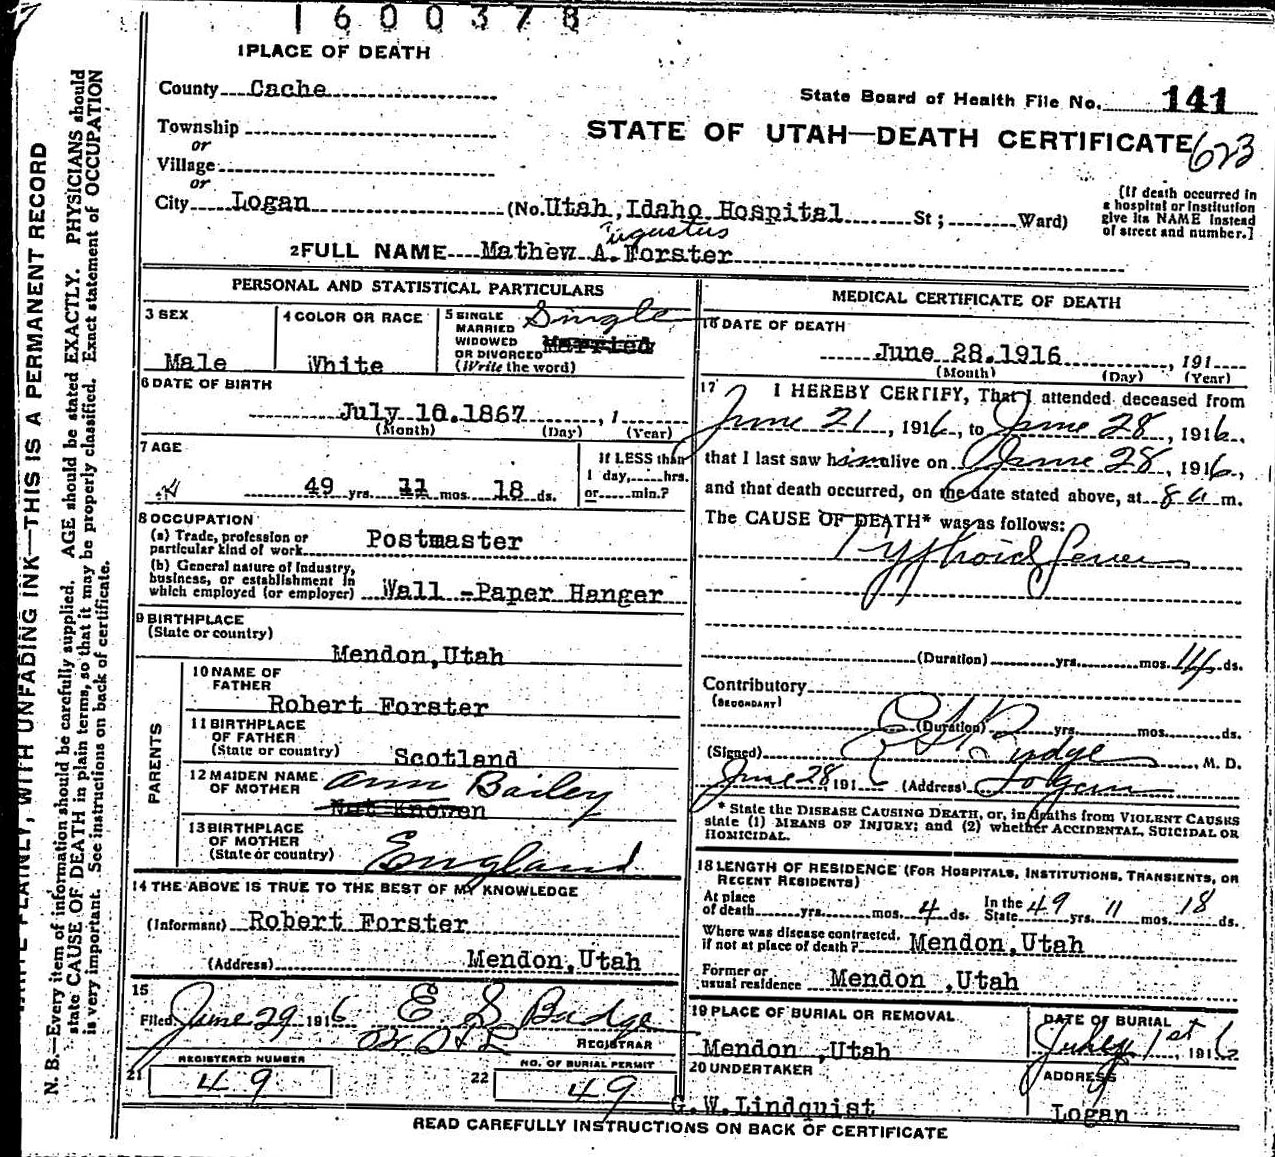 1600378
1 PLACE OF DEATH
County Cache
State Board of Health File No. 141
Township
or
STATE OF UTAH—DEATH CERTIFICATE 623
Village
or
City Logan (No. Utah,Idaho Hospital St; Ward)
[If death occurred in
a hospital or institution
give its NAME instead
of street and number.]
Augustus
2 FULL NAME Mathew A. Forster
PERSONAL AND STATISTICAL PARTICULARS
3 SEX
Male
4 COLOR OR RACE
White
5 SINGLE
MARRIED
WIDOWED
OR DIVORCED
(Write the word)
Single
Married
6 DATE OF BIRTH
July 10.1867 , 1
(Month) (Day) (Year)
7 AGE
49 yrs. 11 mos. 18 ds.
If LESS than
1 day, hrs.
or min.?
8 OCCUPATION
(a) Trade, profession or
particular kind of work Postmaster
(b) General nature of industry,
business, or establishment in
which employed (or employer) Wall -Paper Hanger
9 BIRTHPLACE
(State or country)
Mendon,Utah
PARENTS
10 NAME OF
FATHER
Robert Forster
11 BIRTHPLACE
OF FATHER
(State or country) Scotland
12 MAIDEN NAME
OF MOTHER Ann Bailey
Not Knowen
13 BIRTHPLACE
OF MOTHER
(State or country) England
14 THE ABOVE IS TRUE TO THE BEST OF MY KNOWLEDGE
(Informant) Robert Forster
(Address) Mendon,Utah
15
Filed June 29 1916 E. S. Budge
REGISTRAR
REGISTERED NUMBER
21 49
NO. OF BURIAL PERMIT
22 49
MEDICAL CERTIFICATE OF DEATH
16 DATE OF DEATH
June 28.1916 , 191
(Month) (Day) (Year)
17 I HEREBY CERTIFY, That I attended deceased from
June 21, 1916, to June 28, 1916,
that I last saw him alive on June 28, 1916,
and that death occurred, on the date stated above, at 8 a m.
The CAUSE OF DEATH* was as follows:
Typhoid fever
(Duration) yrs. mos. 14 ds.
Contributory
(SECONDARY)
(Duration) yrs. mos. ds.
(Signed) E S Budge, M. D.
June 28, 1916 (Address) Logan
* State the DISEASE CAUSING DEATH, or, in deaths from VIOLENT CAUSES
state (1) MEANS OF INJURY; and (2) whether ACCIDENTAL, SUICIDAL OR
HOMICIDAL.
18 LENGTH OF RESIDENCE (FOR HOSPITALS, INSTITUTIONS, TRANSIENTS, OR
RECENT RESIDENTS)
At place
of death yrs. mos. 4 ds.
In the
State 49 yrs 11 mos. 18 ds.
Where was disease contracted,
if not at place of death? Mendon,Utah
Former or
usual residence Mendon ,Utah
19 PLACE OF BURIAL OR REMOVAL
Mendon ,Utah
DATE OF BURIAL
July 1st 1916
20 UNDERTAKER
G.W.Lindquist
ADDRESS
Logan
READ CAREFULLY INSTRUCTIONS ON BACK OF CERTIFICATE
WRITE PLAINLY, WITH UNFADING INK—THIS IS A PERMANENT RECORD
N. B.—Every item of information should be carefully supplied. AGE should be stated EXACTLY. PHYSICIANS should
state CAUSE OF DEATH in plain terms, so that it may be properly classified. Exact statement of OCCUPATION
is very important. See instructions on back of certificate.